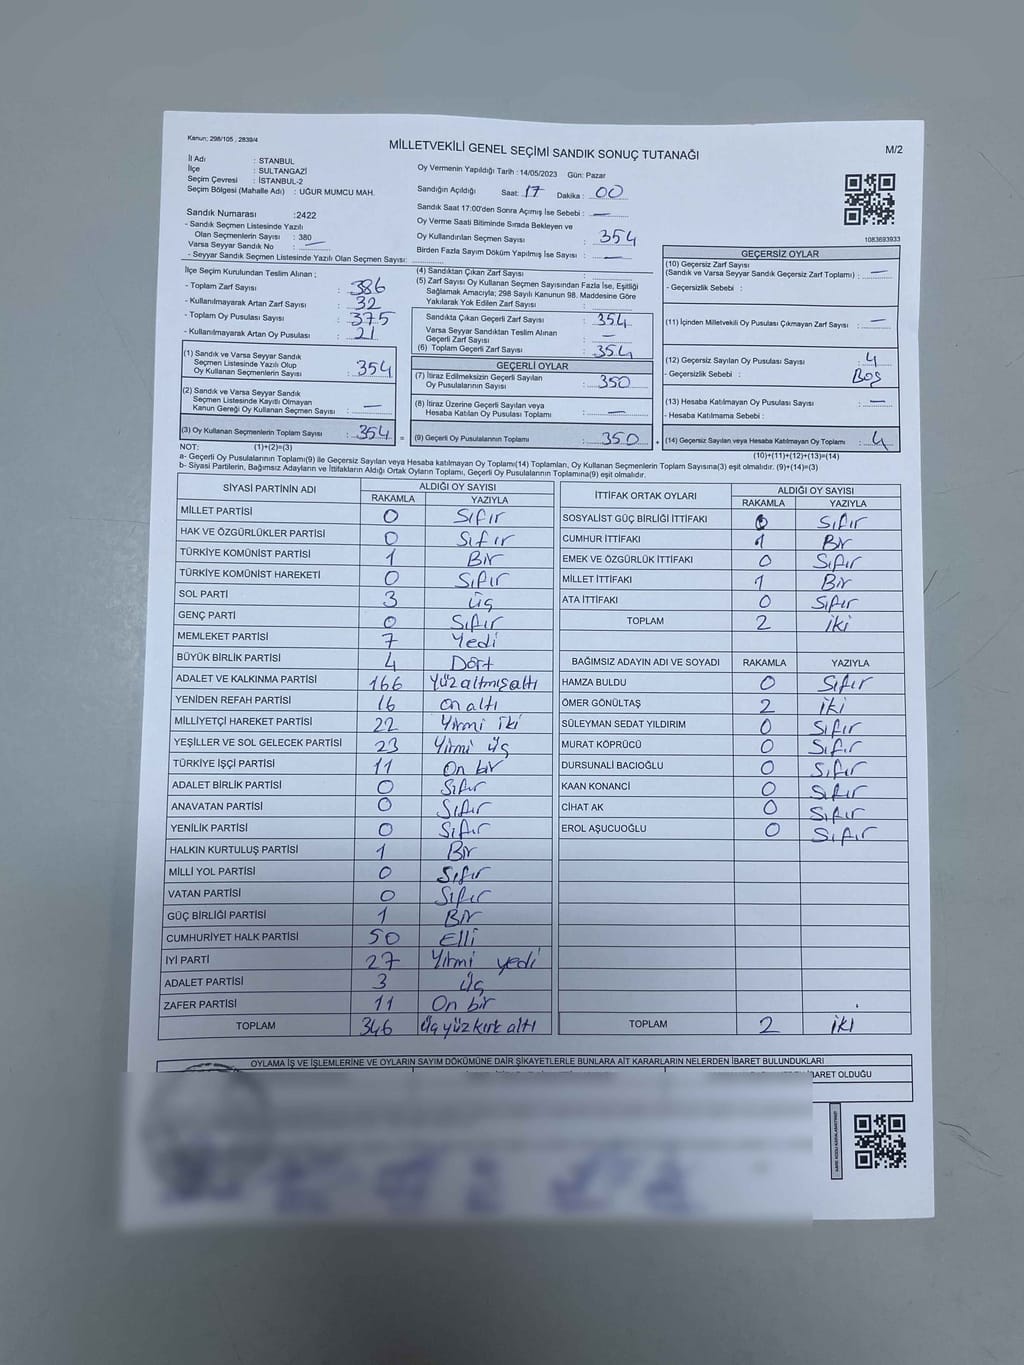 Kanun: 298/105 , 2839/4
MİLLETVEKİLİ GENEL SEÇİMİ SANDIK SONUÇ TUTANAĞI
M/2
İl Adı : STANBUL
İlçe : SULTANGAZİ
Seçim Çevresi : İSTANBUL-2
Seçim Bölgesi (Mahalle Adı) : UĞUR MUMCU MAH.
Sandık Numarası :2422
- Sandık Seçmen Listesinde Yazılı
Olan Seçmenlerin Sayısı : 380
Varsa Seyyar Sandık No : —
- Seyyar Sandık Seçmen Listesinde Yazılı Olan Seçmen Sayısı:
Oy Vermenin Yapıldığı Tarih : 14/05/2023 Gün: Pazar
Sandığın Açıldığı Saat: 17 Dakika : 00
Sandık Saat 17:00'den Sonra Açımış İse Sebebi : —
Oy Verme Saati Bitiminde Sırada Bekleyen ve
Oy Kullandırılan Seçmen Sayısı : 354
Birden Fazla Sayım Döküm Yapılmış İse Sayısı : —
1083693933
İlçe Seçim Kurulundan Teslim Alınan ;
- Toplam Zarf Sayısı : 386
- Kullanılmayarak Artan Zarf Sayısı : 32
- Toplam Oy Pusulası Sayısı : 375
- Kullanılmayarak Artan Oy Pusulası : 21
(1) Sandık ve Varsa Seyyar Sandık
Seçmen Listesinde Yazılı Olup
Oy Kullanan Seçmenlerin Sayısı : 354
(2) Sandık ve Varsa Seyyar Sandık
Seçmen Listesinde Kayıtlı Olmayan
Kanun Gereği Oy Kullanan Seçmen Sayısı : —
(3) Oy Kullanan Seçmenlerin Toplam Sayısı : 354 =
(4) Sandıktan Çıkan Zarf Sayısı :
(5) Zarf Sayısı Oy Kullanan Seçmen Sayısından Fazla İse, Eşitliği
Sağlamak Amacıyla; 298 Sayılı Kanunun 98. Maddesine Göre
Yakılarak Yok Edilen Zarf Sayısı :
Sandıkta Çıkan Geçerli Zarf Sayısı : 354
Varsa Seyyar Sandıktan Teslim Alınan
Geçerli Zarf Sayısı : —
(6) Toplam Geçerli Zarf Sayısı : 354
GEÇERLİ OYLAR
(7) İtiraz Edilmeksizin Geçerli Sayılan
Oy Pusulalarının Sayısı : 350
(8) İtiraz Üzerine Geçerli Sayılan veya
Hesaba Katılan Oy Pusulası Toplamı : —
(9) Geçerli Oy Pusulalarının Toplamı : 350
GEÇERSİZ OYLAR
(10) Geçersiz Zarf Sayısı
(Sandık ve Varsa Seyyar Sandık Geçersiz Zarf Toplamı) : —
- Geçersizlik Sebebi :
(11) İçinden Milletvekili Oy Pusulası Çıkmayan Zarf Sayısı : —
(12) Geçersiz Sayılan Oy Pusulası Sayısı : 4
- Geçersizlik Sebebi : Boş
(13) Hesaba Katılmayan Oy Pusulası Sayısı : —
- Hesaba Katılmama Sebebi :
(14) Geçersiz Sayılan veya Hesaba Katılmayan Oy Toplamı : 4
NOT: (1)+(2)=(3)
(10)+(11)+(12)+(13)=(14)
a- Geçerli Oy Pusulaları Toplamı(9) ile Geçersiz Sayılan veya Hesaba katılmayan Oy Toplamı(14) Toplamları, Oy Kullanan Seçmenlerin Toplam Sayısına(3) eşit olmalıdır. (9)+(14)=(3)
b- Siyasi Partilerin, Bağımsız Adayların ve İttifakların Aldığı Ortak Oyların Toplamı, Geçerli Oy Pusulalarının Toplamına(9) eşit olmalıdır.
SİYASİ PARTİNİN ADI ALDIĞI OY SAYISI
RAKAMLA YAZIYLA
MİLLET PARTİSİ 0 Sıfır
HAK VE ÖZGÜRLÜKLER PARTİSİ 0 Sıfır
TÜRKİYE KOMÜNİST PARTİSİ 1 Bir
TÜRKİYE KOMÜNİST HAREKETİ 0 Sıfır
SOL PARTİ 3 Üç
GENÇ PARTİ 0 Sıfır
MEMLEKET PARTİSİ 7 Yedi
BÜYÜK BİRLİK PARTİSİ 4 Dört
ADALET VE KALKINMA PARTİSİ 166 Yüzaltmışaltı
YENİDEN REFAH PARTİSİ 16 on altı
MİLLİYETÇİ HAREKET PARTİSİ 22 Yirmi iki
YEŞİLLER VE SOL GELECEK PARTİSİ 23 Yirmi üç
TÜRKİYE İŞÇİ PARTİSİ 11 On bir
ADALET BİRLİK PARTİSİ 0 Sıfır
ANAVATAN PARTİSİ 0 Sıfır
YENİLİK PARTİSİ 0 Sıfır
HALKIN KURTULUŞ PARTİSİ 1 Bir
MİLLİ YOL PARTİSİ 0 Sıfır
VATAN PARTİSİ 0 Sıfır
GÜÇ BİRLİĞİ PARTİSİ 1 Bir
CUMHURİYET HALK PARTİSİ 50 Elli
İYİ PARTİ 27 Yirmi yedi
ADALET PARTİSİ 3 Üç
ZAFER PARTİSİ 11 On bir
TOPLAM 346 Üçyüzkırk altı
İTTİFAK ORTAK OYLARI ALDIĞI OY SAYISI
RAKAMLA YAZIYLA
SOSYALİST GÜÇ BİRLİĞİ İTTİFAKI 0 Sıfır
CUMHUR İTTİFAKI 1 Bir
EMEK VE ÖZGÜRLÜK İTTİFAKI 0 Sıfır
MİLLET İTTİFAKI 1 Bir
ATA İTTİFAKI 0 Sıfır
TOPLAM 2 iki
BAĞIMSIZ ADAYIN ADI VE SOYADI RAKAMLA YAZIYLA
HAMZA BULDU 0 Sıfır
ÖMER GÖNÜLTAŞ 2 iki
SÜLEYMAN SEDAT YILDIRIM 0 Sıfır
MURAT KÖPRÜCÜ 0 Sıfır
DURSUNALİ BACIOĞLU 0 Sıfır
KAAN KONANCİ 0 Sıfır
CİHAT AK 0 Sıfır
EROL AŞUCUOĞLU 0 Sıfır
TOPLAM 2 iki
OYLAMA İŞ VE İŞLEMLERİNE VE OYLARIN SAYIM DÖKÜMÜNE DAİR ŞİKAYETLERLE BUNLARA AİT KARARLARIN NELERDEN İBARET BULUNDUKLARI
İBARET OLDUĞU